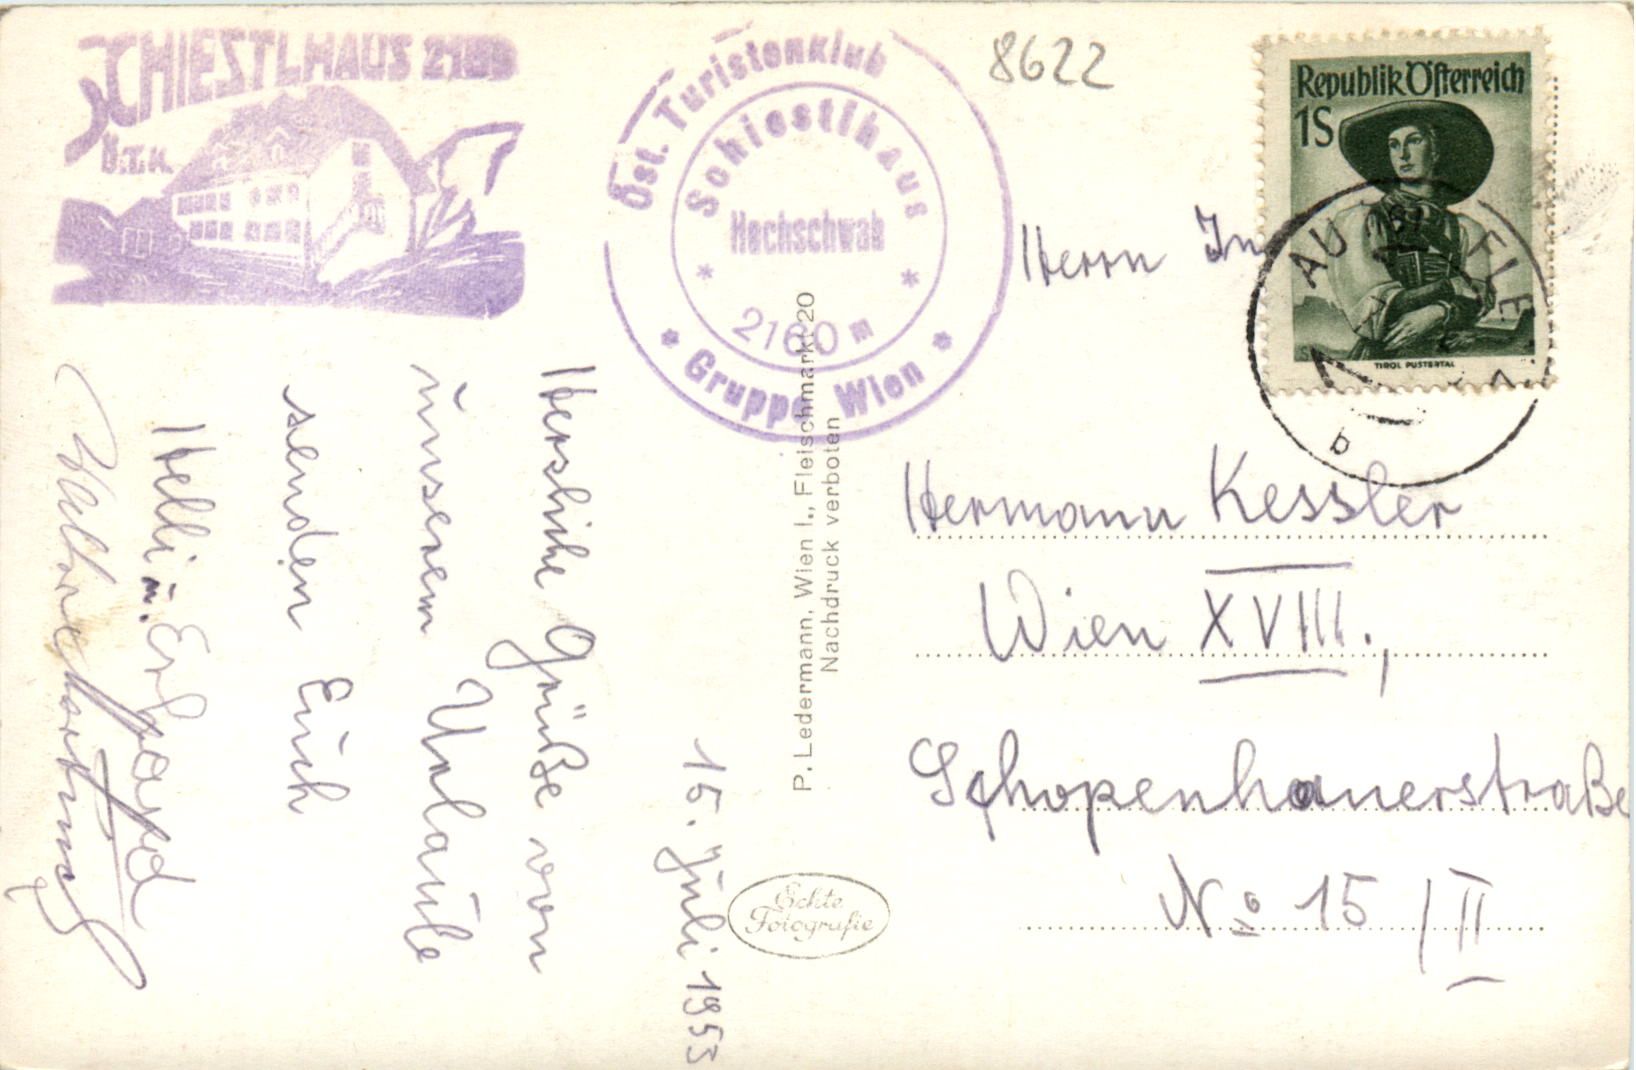 SCHIESTLHAUS
Ö.T.K.
Öst. Turistenklub
Schiestlhaus
Hochschwab
2160 m
Gruppe Wien
8622
Republik Österreich
1S
TIROL PUSTERTAL
AU
b
Herrn
Hermann Kessler
Wien XVIII.,
Schopenhauerstraße
No 15/II
P. Ledermann, Wien I., Fleischmarkt 20
Nachdruck verboten
Echte
Fotografie
15. Juli 1953
Herzliche Grüße von
unserem Urlaube
senden Euch
Helli u. Erhard